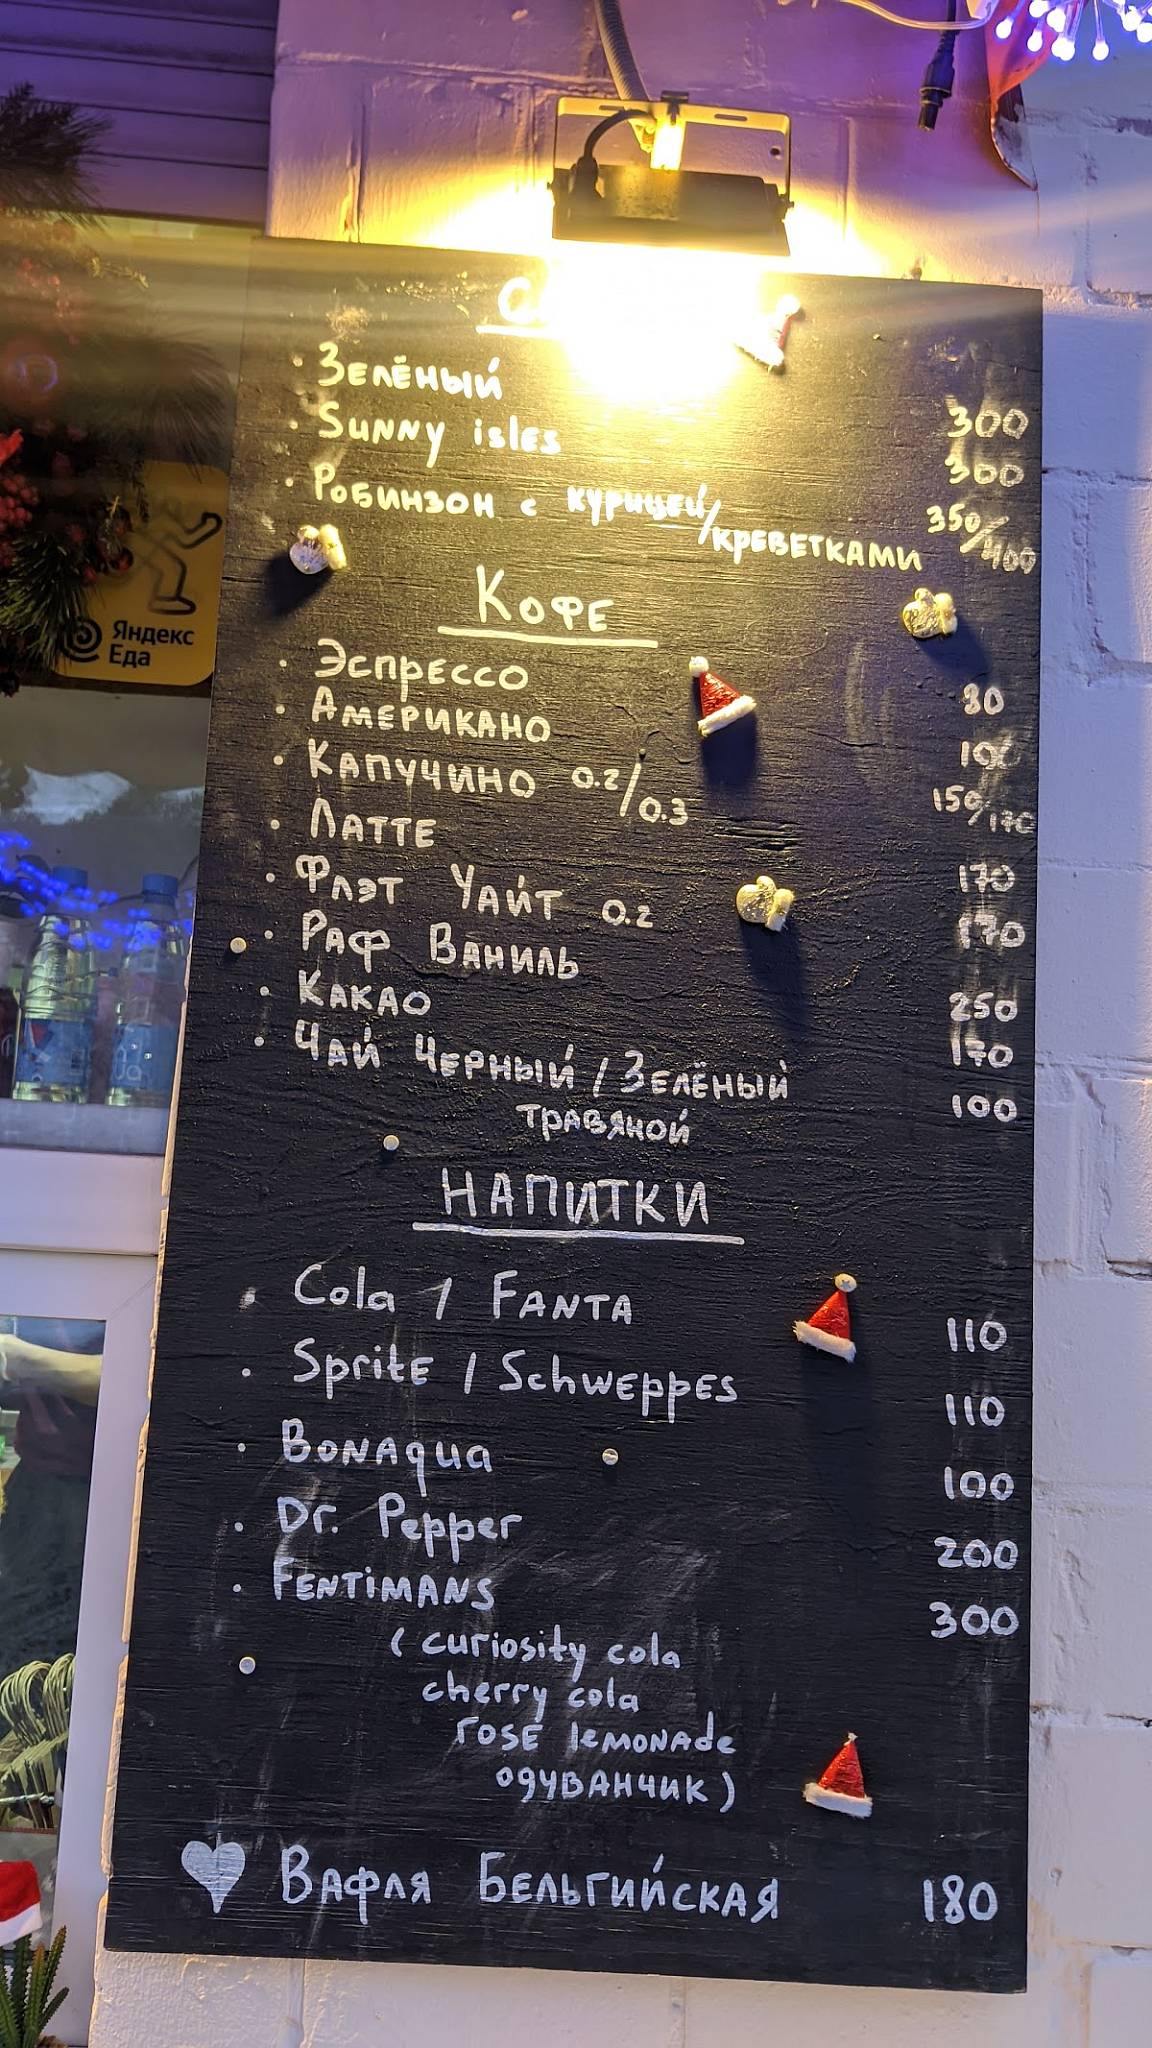 Зелёный 300
Sunny isles 300
Робинзон с курицей/креветками 350/400
Кофе
Эспрессо 80
Американо 100
Капучино 0.2/0.3 150/170
Латте 170
Флэт Уайт 0.2 170
Раф Ваниль 250
Какао 170
Чай Черный / Зелёный 100
травяной
Напитки
Cola / Fanta 110
Sprite / Schweppes 110
BonAqua 100
Dr. Pepper 200
Fentimans 300
(curiosity cola
cherry cola
rose lemonade
одуванчик)
Вафля Бельгийская 180
Яндекс
Еда